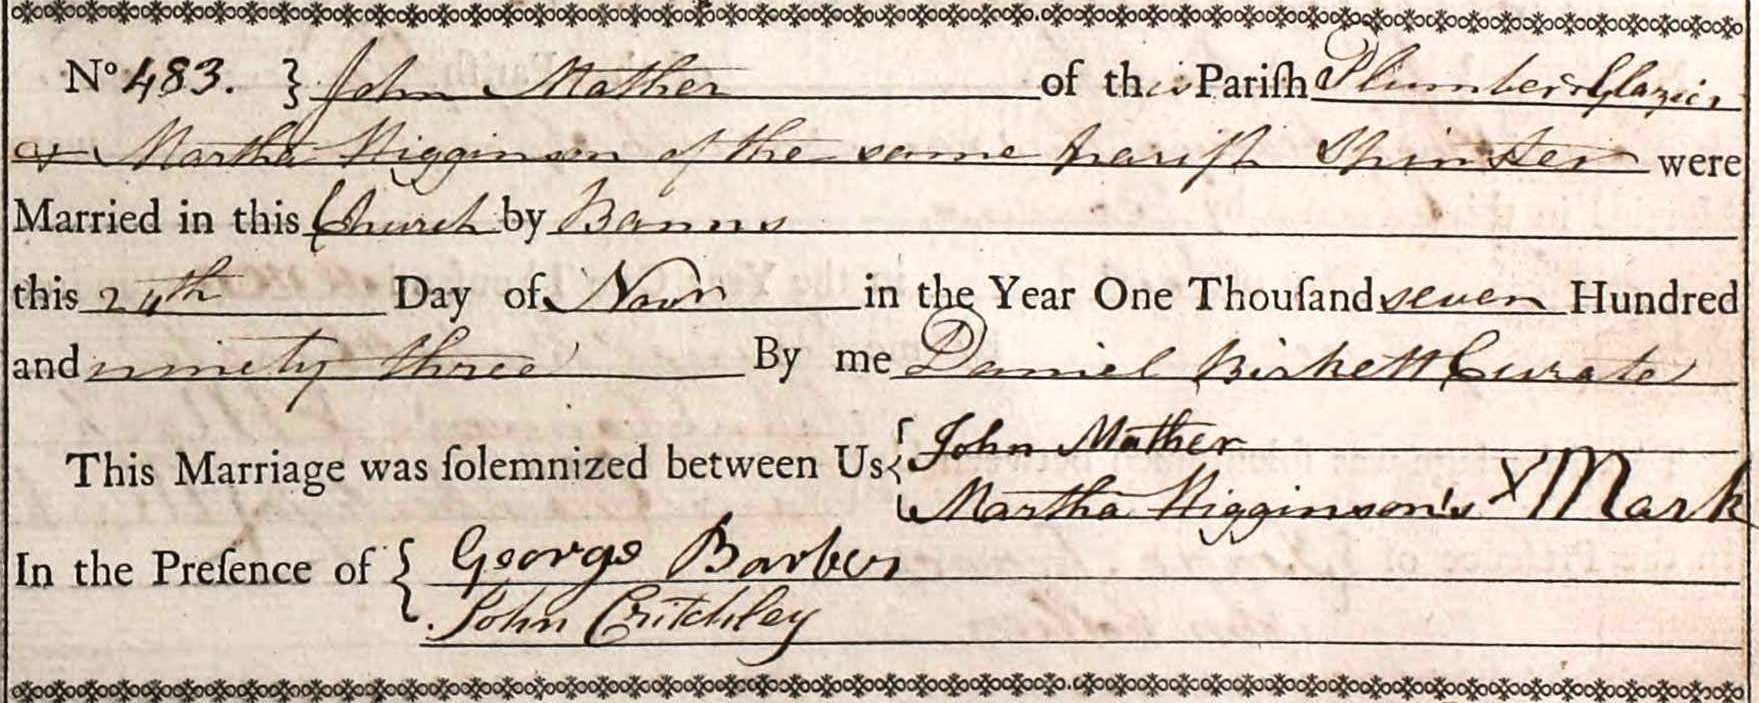 No 483. } John Mather of this Pariſh Plumber & Glazier
& Martha Higginson of the same pariſh Spinster were
Married in this Church by Banns
this 24th Day of Novr in the Year One Thouſand seven Hundred
and ninety three By me Daniel Birkett Curate
This Marriage was ſolemnized between Us { John Mather
Martha Higginson's X Mark
In the Preſence of { George Barber
John Critchley